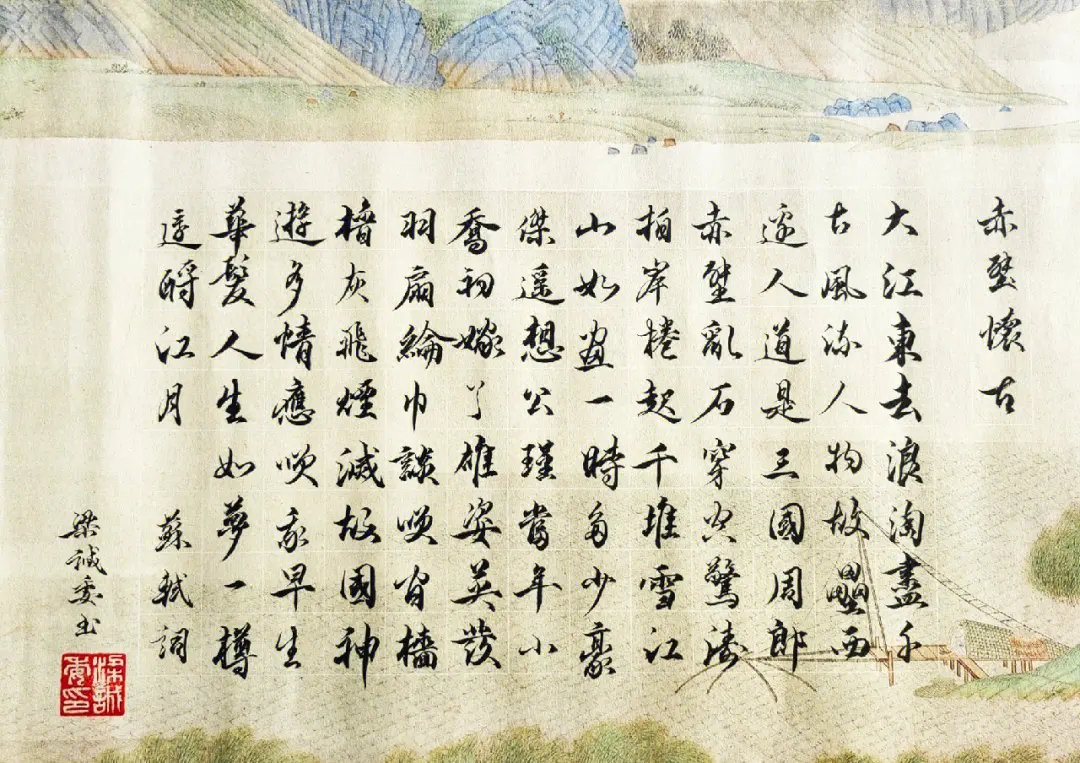 赤壁懷古
大江東去浪淘盡千
古風流人物故壘西
邊人道是三國周郎
赤壁亂石穿空驚濤
拍岸捲起千堆雪江
山如畫一時多少豪
傑遥想公瑾當年小
喬初嫁了雄姿英發
羽扇綸巾談咲間檣
櫓灰飛煙滅故國神
遊多情應咲我早生
華髮人生如夢一樽
還酹江月 蘇軾詞
梁誠委书
梁誠委印